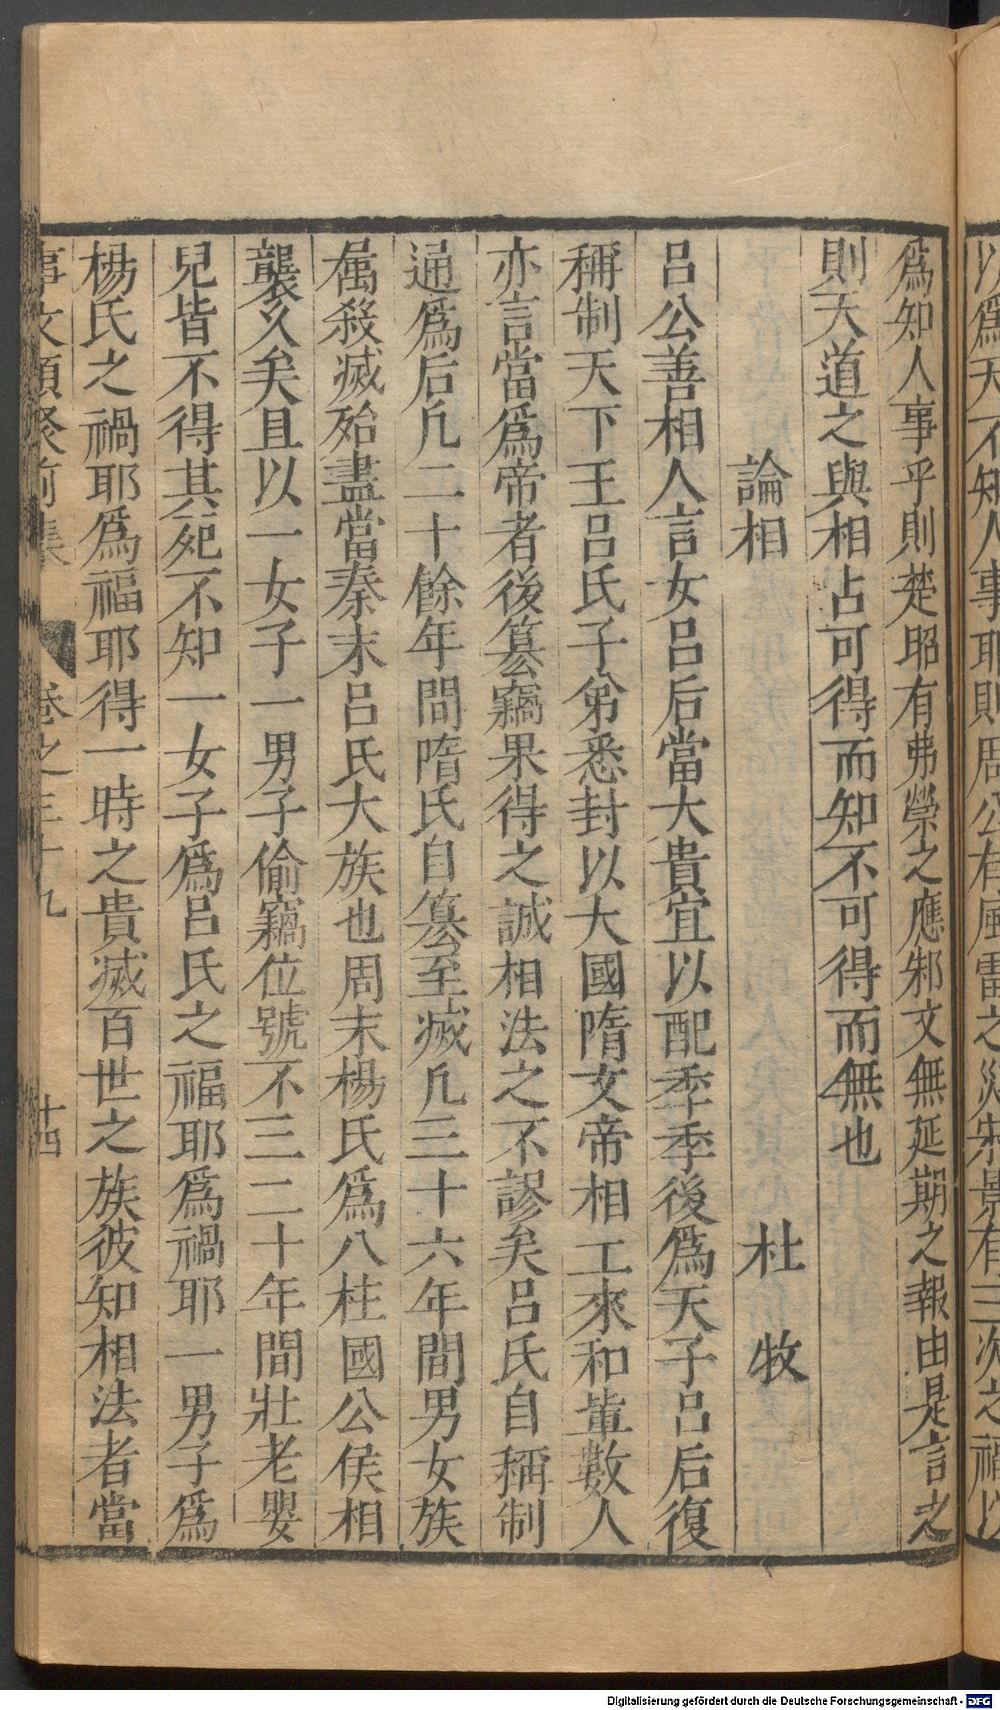 以爲天不知人事耶則周公有風雷之災宋景有三次之福以
爲知人事乎則楚昭有弗禜之應邾文無延期之報由是言之
則天道之與相占可得而知不可得而無也
論相 杜牧
呂公善相人言女呂后當大貴宜以配季季後爲天子呂后復
稱制天下王呂氏子弟悉封以大國隋文帝相工來和輩數人
亦言當爲帝者後篡竊果得之誠相法之不謬矣呂氏自稱制
通爲后凢二十餘年間隋氏自篡至滅凢三十六年間男女族
属殺滅殆盡當秦末呂氏大族也周末楊氏爲八柱國公侯相
襲久矣且以一女子一男子偷竊位號不三二十年間壯老嬰
兒皆不得其死不知一女子爲呂氏之福耶爲禍耶一男子爲
楊氏之禍耶爲福耶得一時之貴滅百世之族彼知相法者當
事文類聚前集 卷之三十九 十四
Digitalisierung gefördert durch die Deutsche Forschungsgemeinschaft - DFG